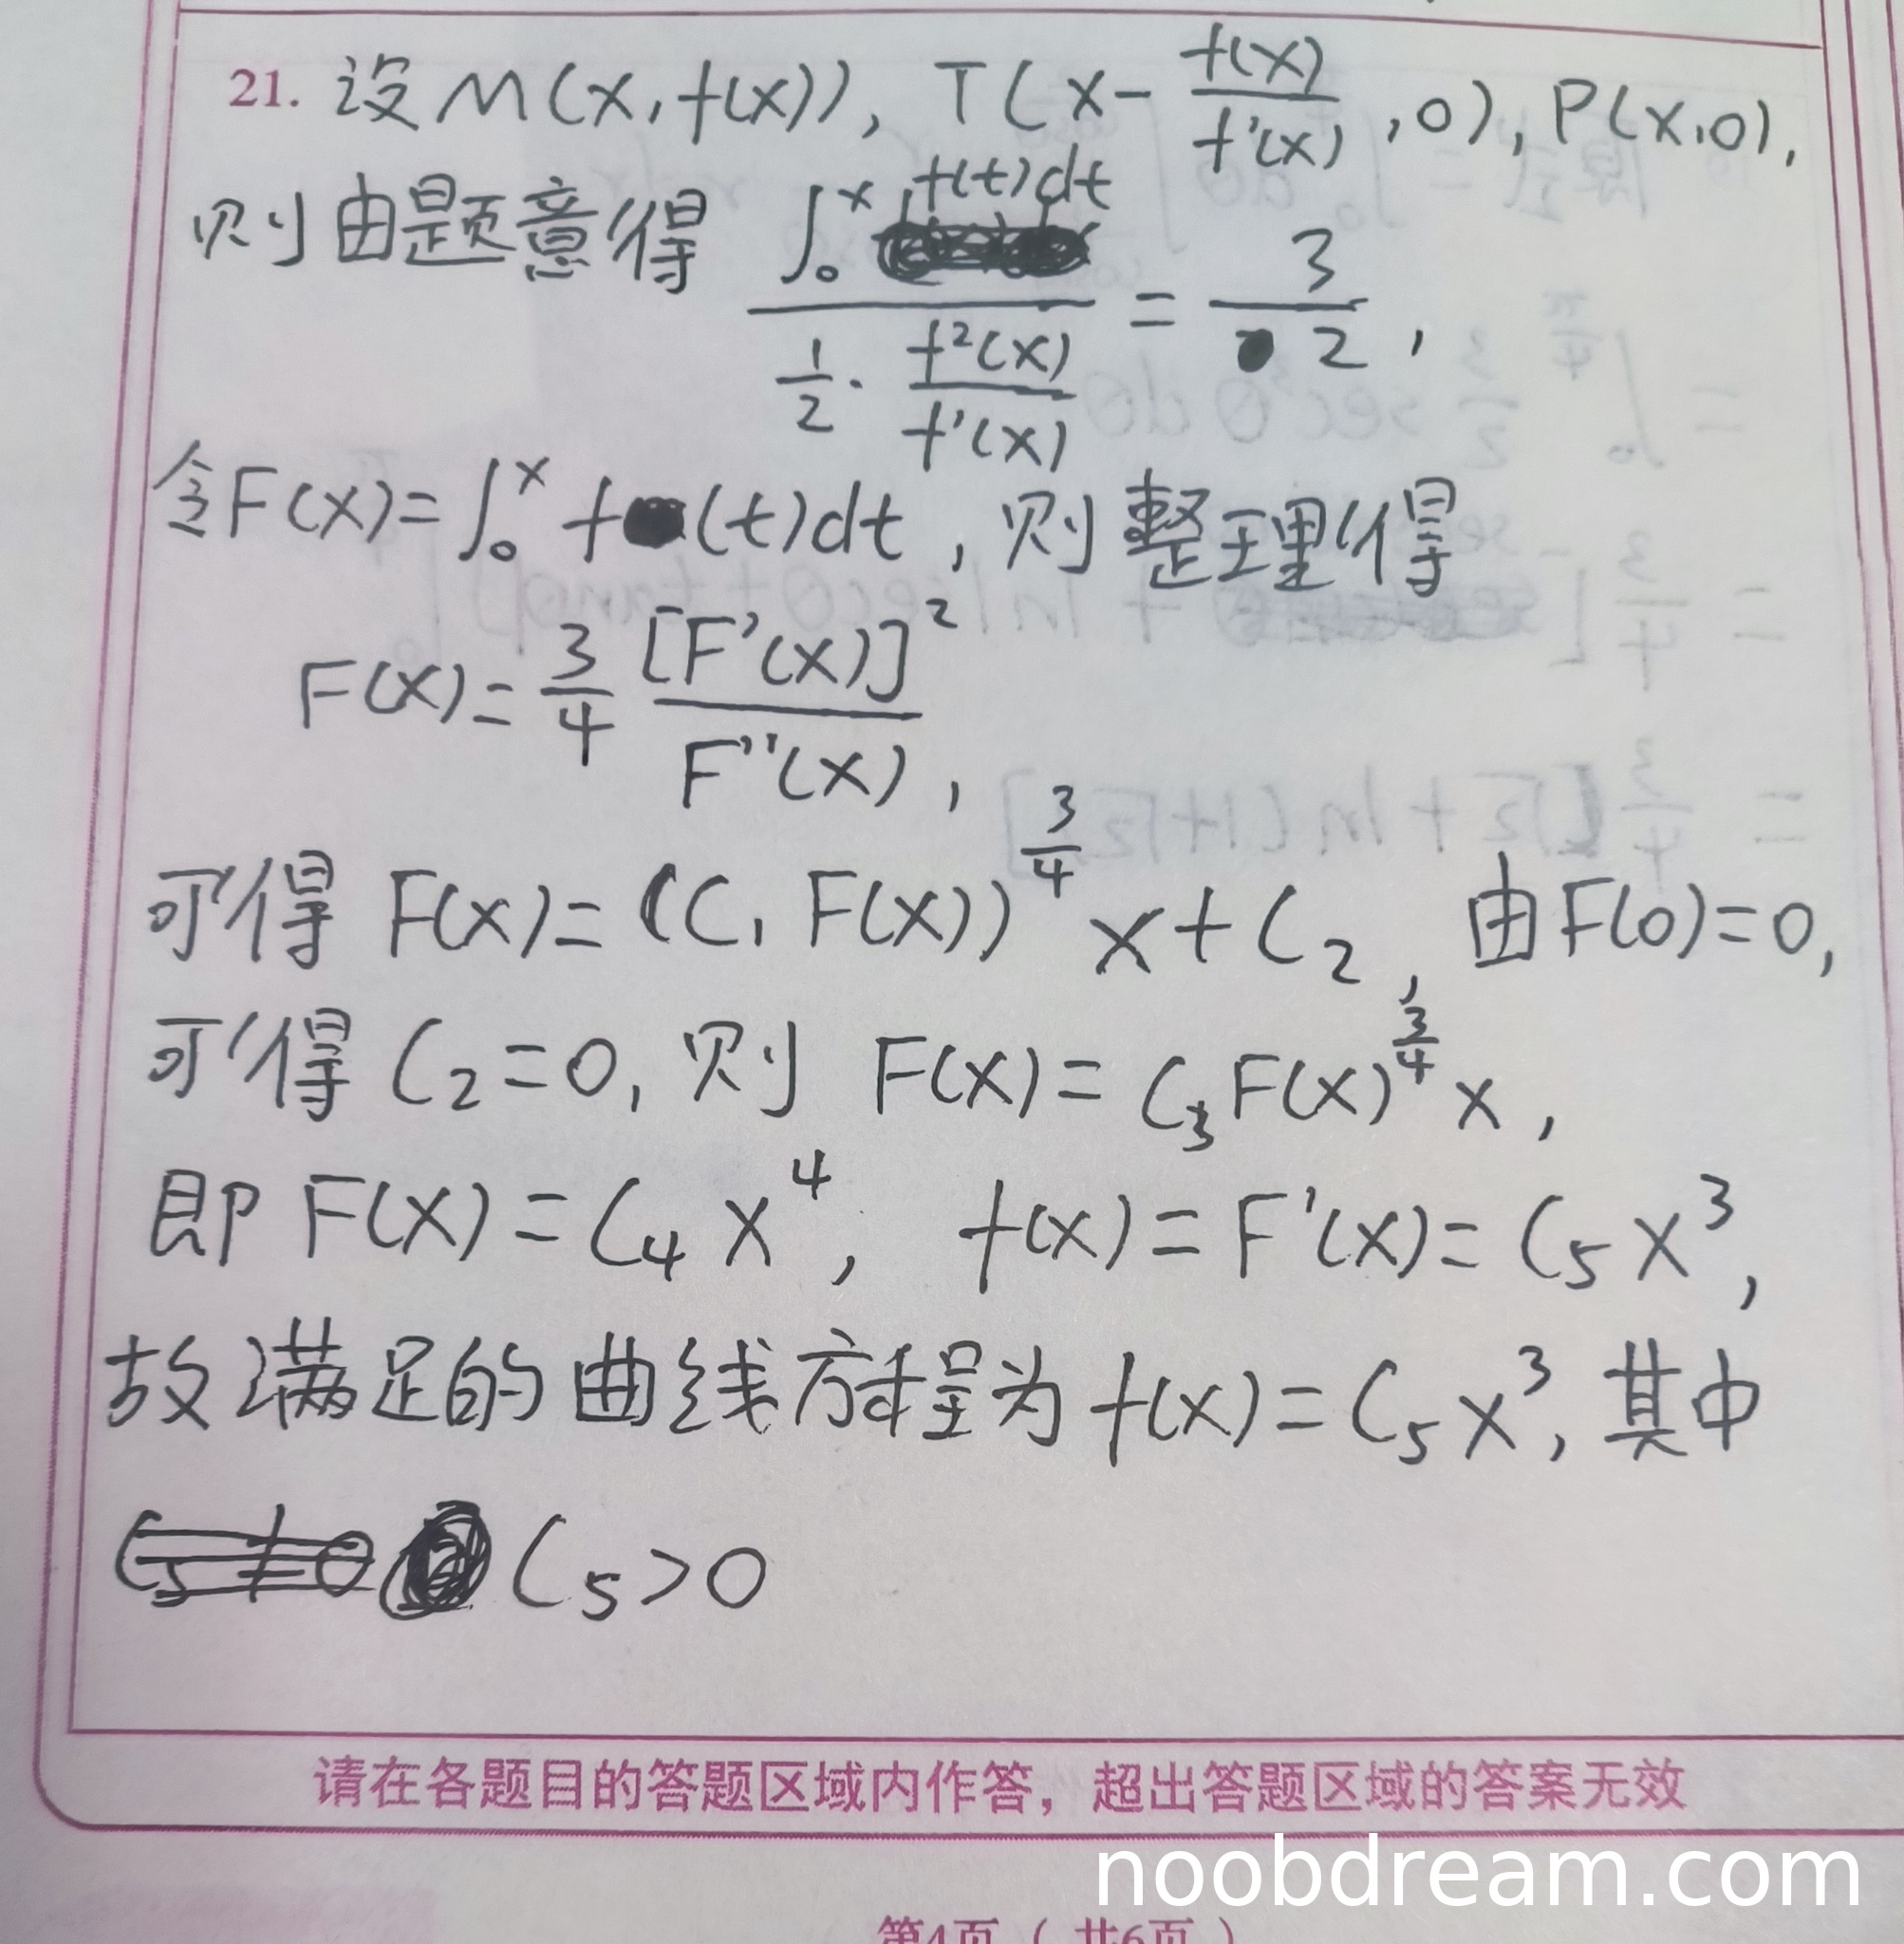 21. 设 M(x, f(x)), T(x - \frac{f(x)}{f'(x)}, 0), P(x,0),
则由题意得 \frac{\int_0^x f(t)dt}{\frac{1}{2} \cdot \frac{f^2(x)}{f'(x)}} = \frac{3}{2},
令F(x)=\int_0^x f(t)dt, 则整理得
F(x)=\frac{3}{4} \frac{[F'(x)]^2}{F''(x)},
可得 F(x)=(C_1 F(x))^{\frac{3}{4}} x+C_2, 由F(0)=0,
可得 C_2=0, 则 F(x)=C_3F(x)^{\frac{3}{4}} x,
即 F(x)=C_4 x^4, f(x)=F'(x)=C_5 x^3,
故满足的曲线方程为 f(x)=C_5 x^3, 其中
C_5>0
请在各题目的答题区域内作答，超出答题区域的答案无效
noobdream.com
第4页（共6页）